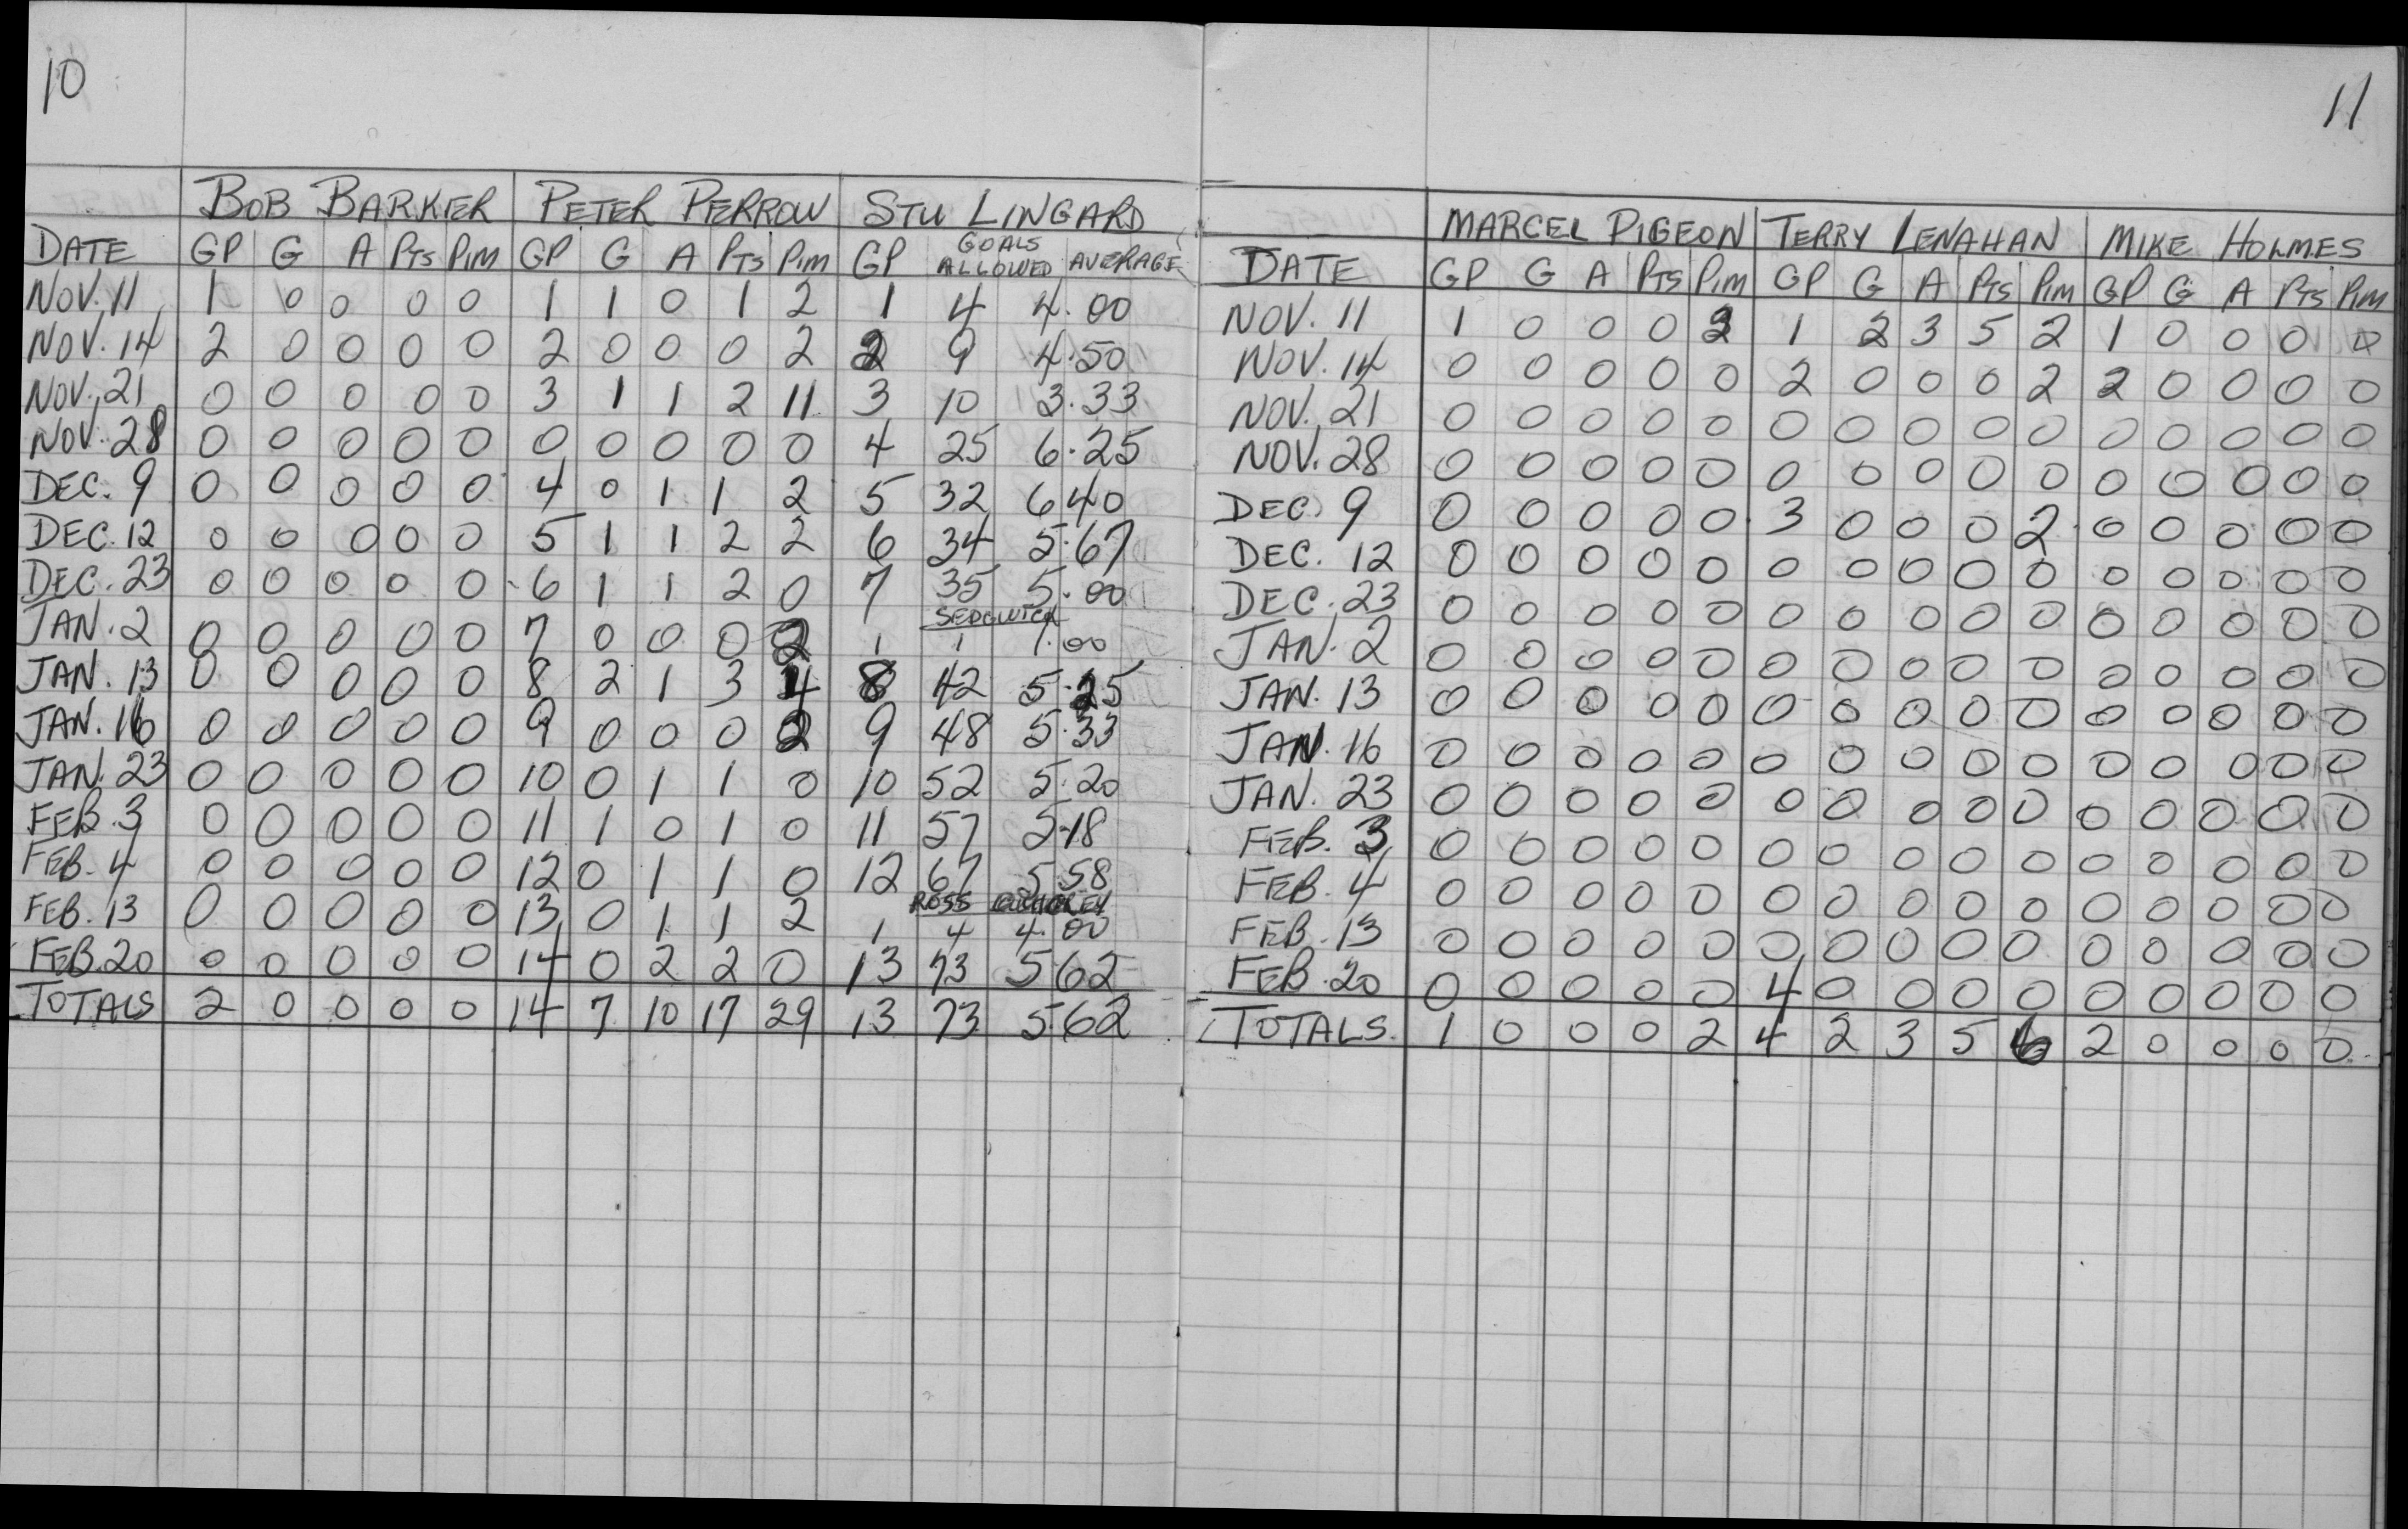 10
BOB BARKER PETER PERROW STU LINGARD
DATE GP G A PTS PIM GP G A PTS PIM GP GOALS ALLOWED AVERAGE
NOV. 11 1 0 0 0 0 1 1 0 1 2 1 4 4.00
NOV. 14 2 0 0 0 0 2 0 0 0 2 2 9 4.50
NOV. 21 0 0 0 0 0 3 1 1 2 11 3 10 3.33
NOV. 28 0 0 0 0 0 0 0 0 0 0 4 25 6.25
DEC. 9 0 0 0 0 0 4 0 1 1 2 5 32 6.40
DEC. 12 0 0 0 0 0 5 1 1 2 2 6 34 5.67
DEC. 23 0 0 0 0 0 6 1 1 2 0 7 35 5.00
SEDGWICK
JAN. 2 0 0 0 0 0 7 0 0 0 2 1 1 1.00
JAN. 13 0 0 0 0 0 8 2 1 3 4 8 42 5.25
JAN. 16 0 0 0 0 0 9 0 0 0 2 9 48 5.33
JAN. 23 0 0 0 0 0 10 0 1 1 0 10 52 5.20
FEB. 3 0 0 0 0 0 11 1 0 1 0 11 57 5.18
FEB. 4 0 0 0 0 0 12 0 1 1 0 12 67 5.58
ROSS
FEB. 13 0 0 0 0 0 13 0 1 1 2 1 4 4.00
FEB. 20 0 0 0 0 0 14 0 2 2 0 13 73 5.62
TOTALS 2 0 0 0 0 14 7 10 17 29 13 73 5.62
11
MARCEL PIGEON TERRY LENAHAN MIKE HOLMES
DATE GP G A PTS PIM GP G A PTS PIM GP G A PTS PIM
NOV. 11 1 0 0 0 2 1 2 3 5 2 1 0 0 0 0
NOV. 14 0 0 0 0 0 2 0 0 0 2 2 0 0 0 0
NOV. 21 0 0 0 0 0 0 0 0 0 0 0 0 0 0 0
NOV. 28 0 0 0 0 0 0 0 0 0 0 0 0 0 0 0
DEC. 9 0 0 0 0 0 3 0 0 0 2 0 0 0 0 0
DEC. 12 0 0 0 0 0 0 0 0 0 0 0 0 0 0 0
DEC. 23 0 0 0 0 0 0 0 0 0 0 0 0 0 0 0
JAN. 2 0 0 0 0 0 0 0 0 0 0 0 0 0 0 0
JAN. 13 0 0 0 0 0 0 0 0 0 0 0 0 0 0 0
JAN. 16 0 0 0 0 0 0 0 0 0 0 0 0 0 0 0
JAN. 23 0 0 0 0 0 0 0 0 0 0 0 0 0 0 0
FEB. 3 0 0 0 0 0 0 0 0 0 0 0 0 0 0 0
FEB. 4 0 0 0 0 0 0 0 0 0 0 0 0 0 0 0
FEB. 13 0 0 0 0 0 0 0 0 0 0 0 0 0 0 0
FEB. 20 0 0 0 0 0 4 0 0 0 0 0 0 0 0 0
TOTALS 1 0 0 0 2 4 2 3 5 6 2 0 0 0 0